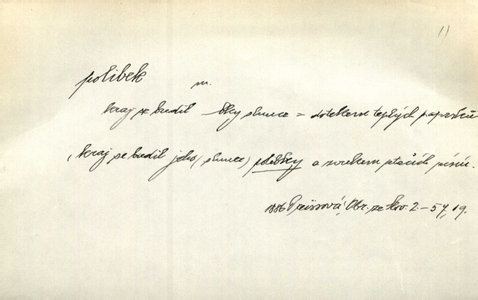 1)
polibek
m.
kraj se budil — —ky slunce = dotekem teplých paprsků
(kraj se budil jeho (slunce) polibky a zvukem ptačích písní.
1886 Preissová, Obr. ze Slov. 2–54, 19.